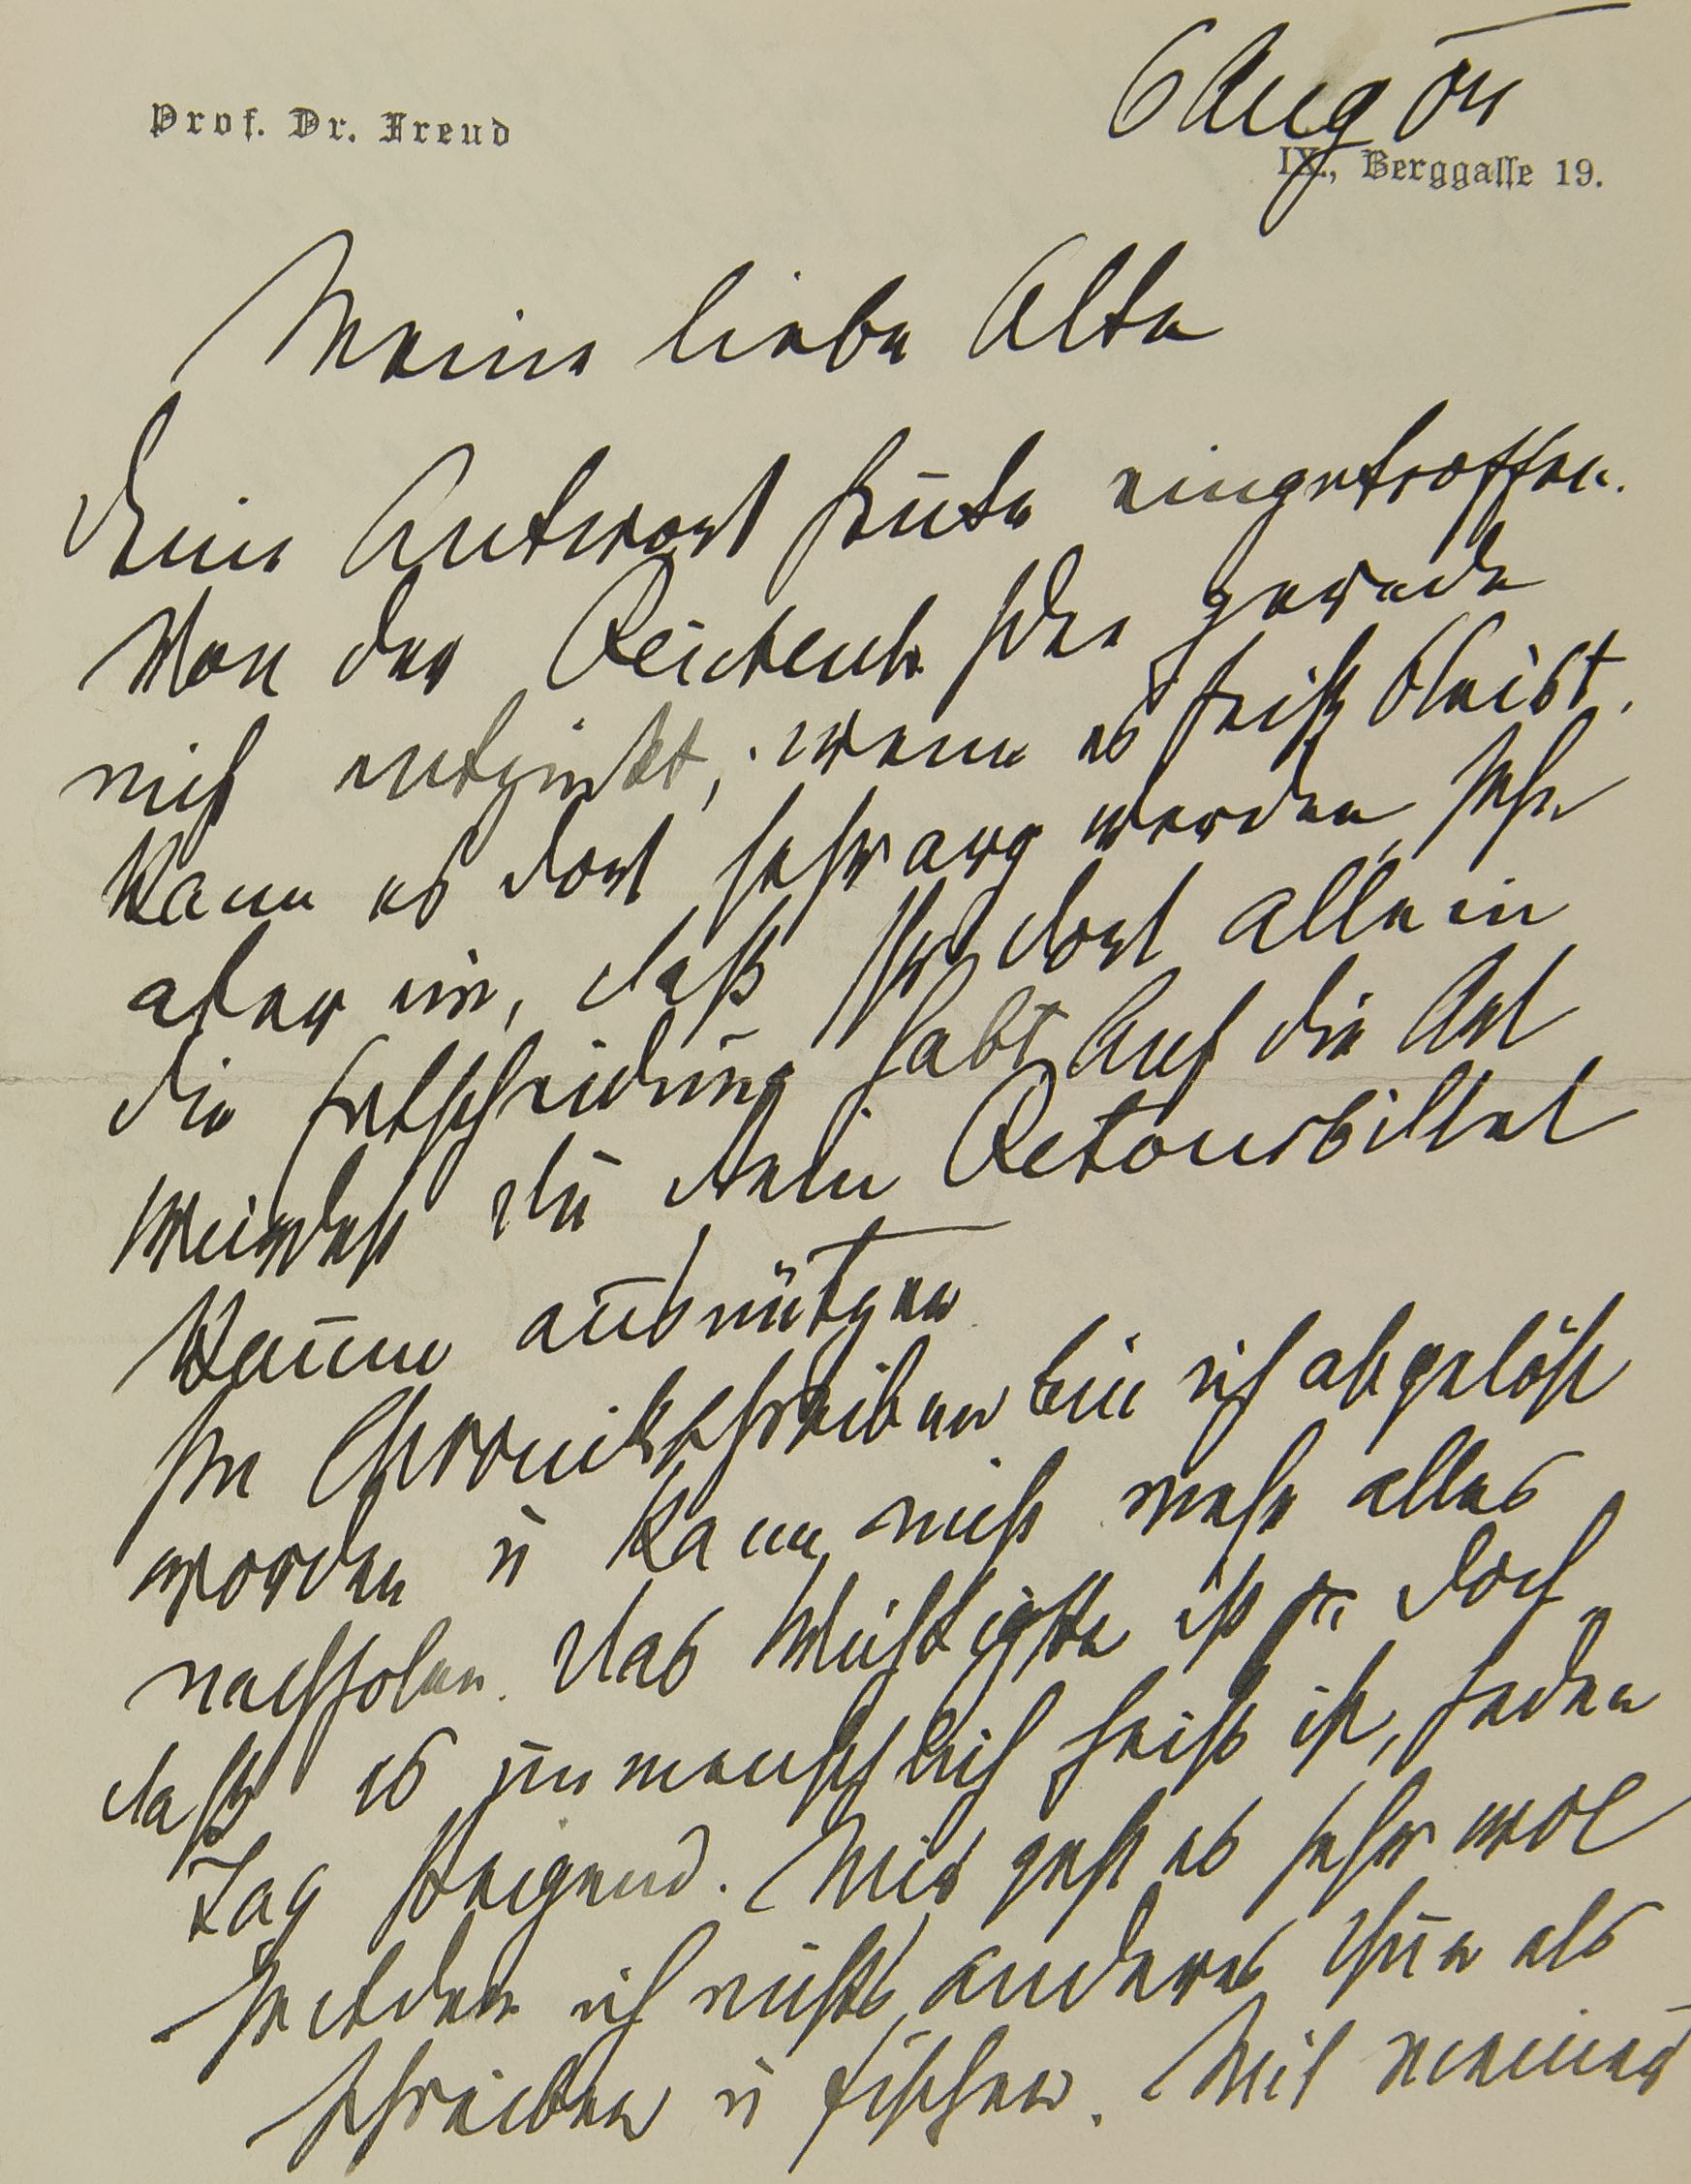 Prof. Dr. Freud
6 Aug 04
IX., Berggasse 19.
Meine liebe Alte
Deine Antwort heute eingetroffen.
Von der Reichenau Idee gerade
nicht entzückt; wenn es heiß bleibt,
kann es dort sehr arg werden, sehe
aber ein, daß Ihr dort allein
die Entscheidung habt. Auf die Art
würdest Du Dein Retourbillet
kaum ausnützen.
Im Chronikschreiben bin ich abgelöst
worden u kann nicht mehr alles
nachholen. Das Wichtigste ist ja doch
daß es unmenschlich heiß ist, jeden
Tag steigend. Mir geht es sehr wol
seitdem ich nichts anderes thue als
schreiben u fischen. Mit meiner